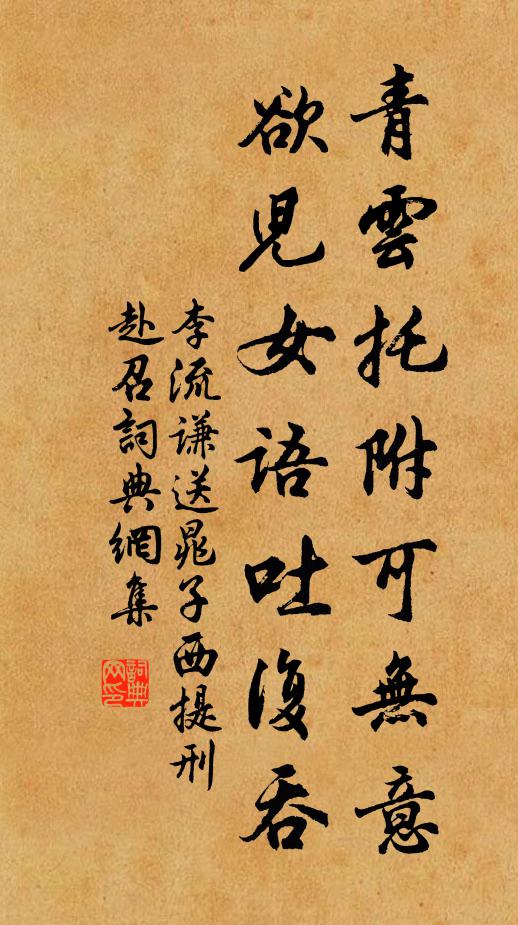 青雲托附可無意
欲兒女語吐復吞
李流谦送晁子西提刑
赴召詞典網集
詞典網印